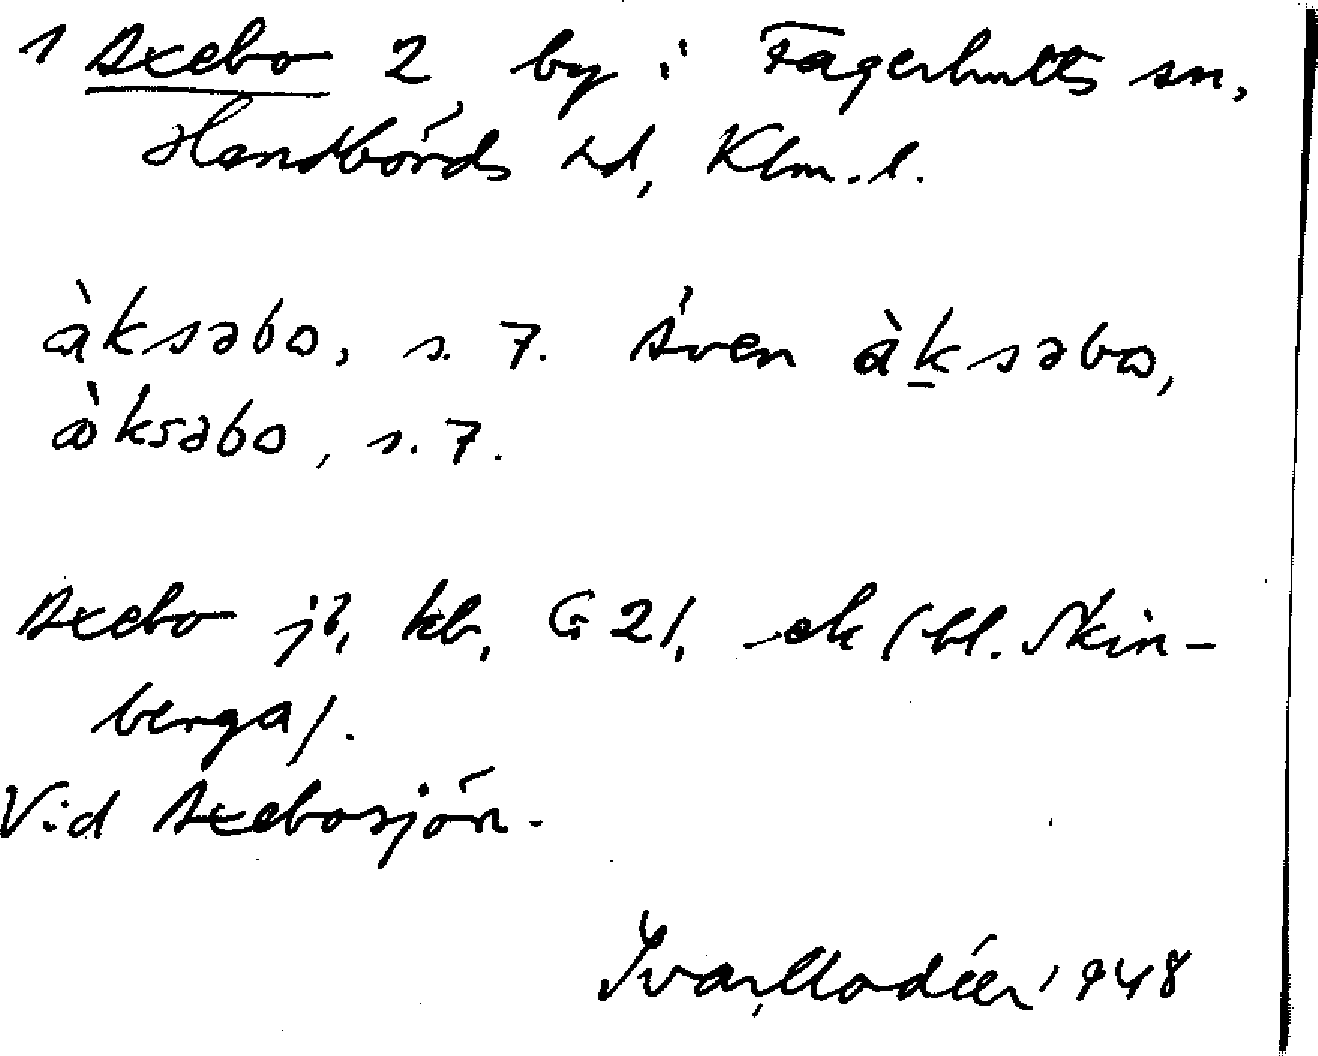 1 Axebo 2 by i Fagerhults sn,
Handbörds hd, Klm. l.
àksəbo, s. 7. Även àk̲səbo,
àksəbo, s. 7.
Axebo jb, kb, G 21, ek (bl. Skin-
berga).
Vid Axebosjön.
Ivar Modéer 1948